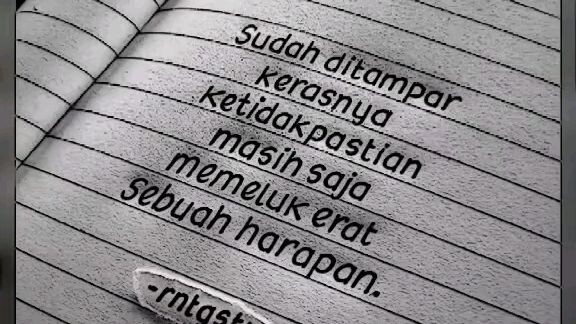 Sudah ditampar
kerasnya
ketidakpastian
masih saja
memeluk erat
Sebuah harapan.